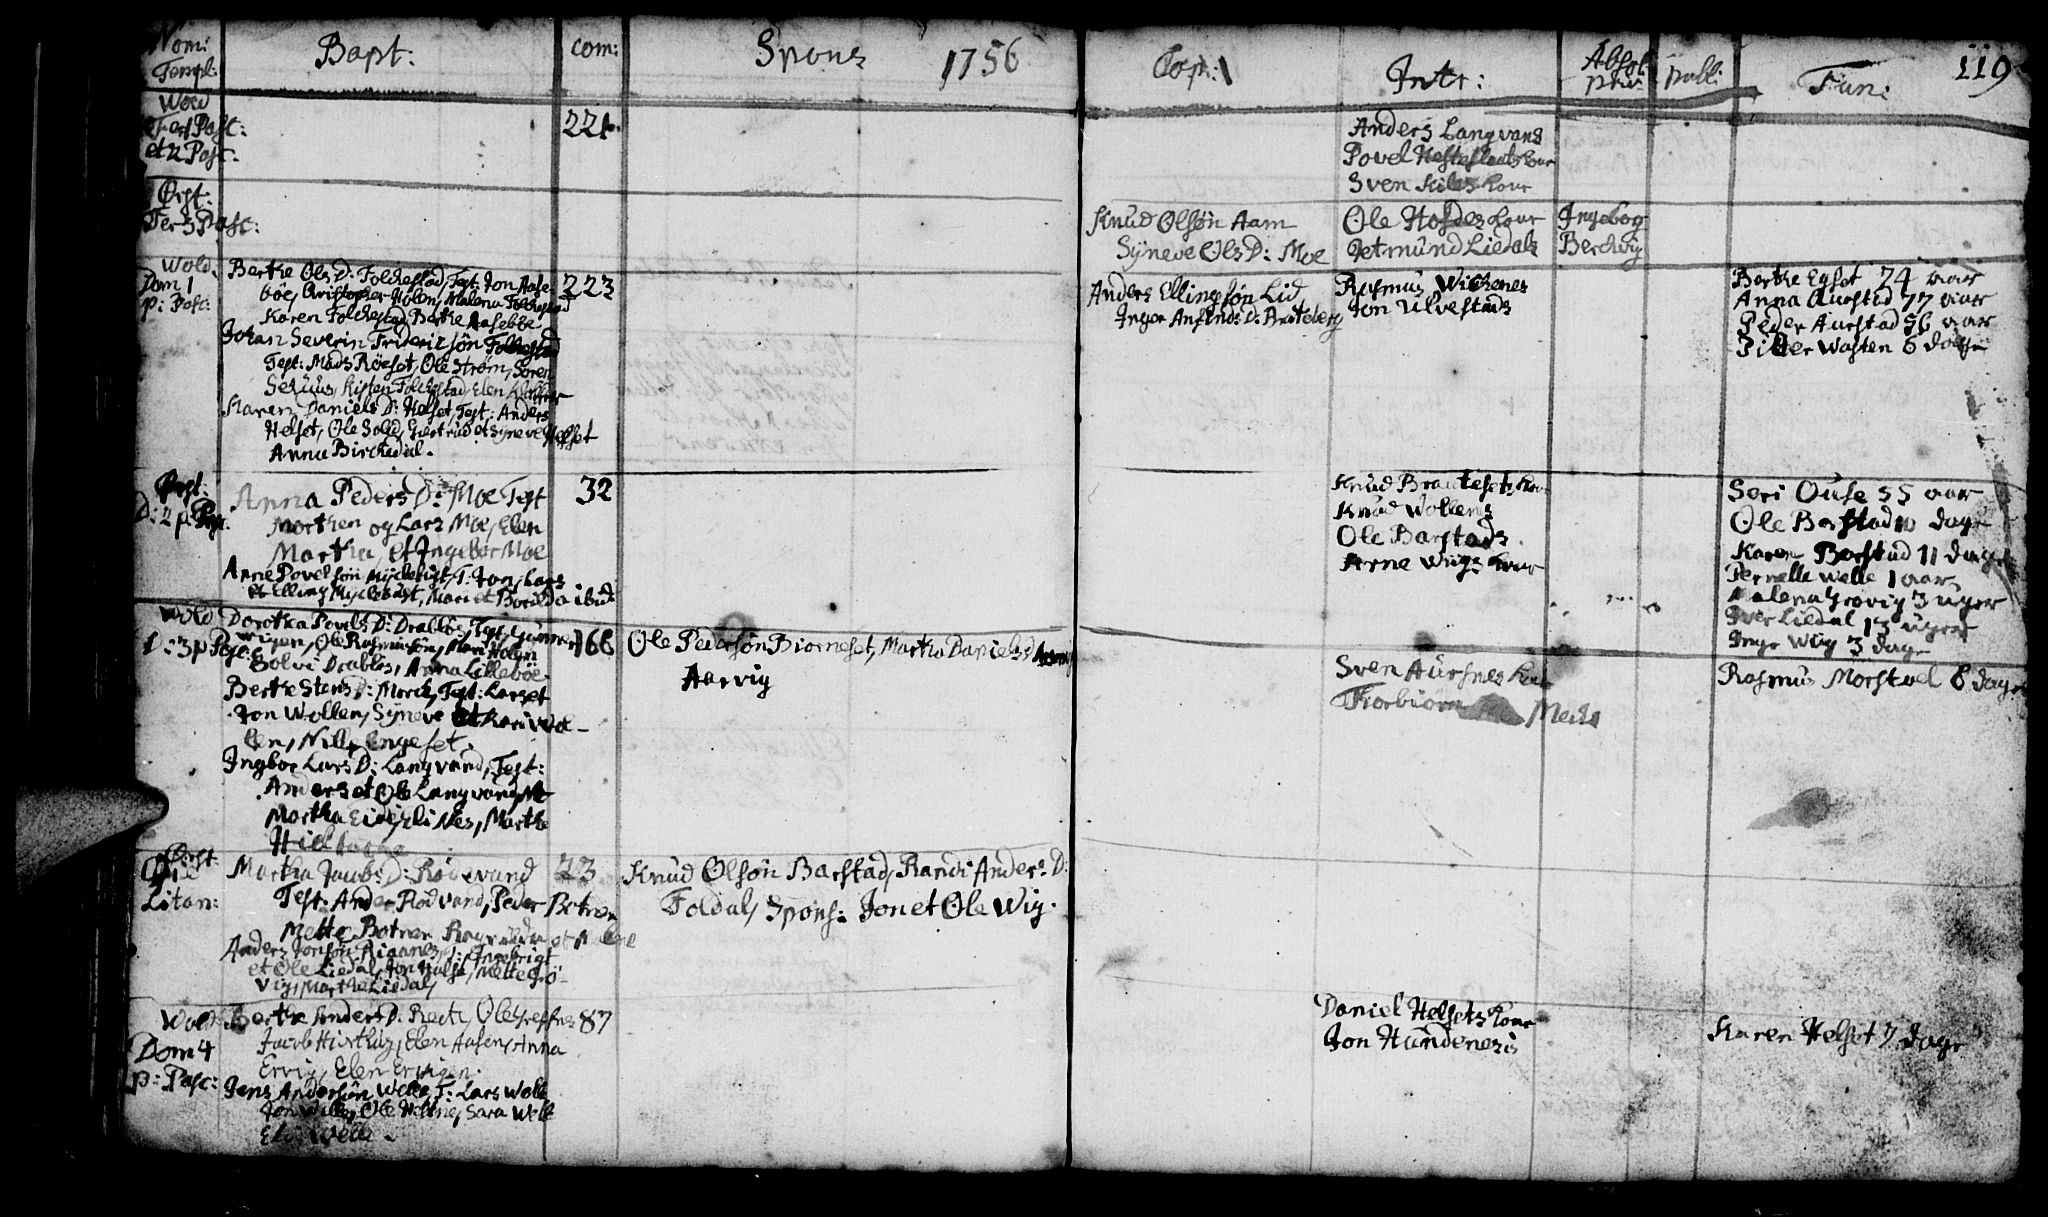 Nom: Templ:
Bapt:
com:
Spons
1756
Cop:
Intr:
Absol priv:
publ:
Fun:
119
Wold
Fer 1 Pasc:
et 2 Pasc:
221
Anders Langvans
Povel Hesteflaats kone
Sven Kiles kone
Ørst:
Fer 3 Pasc:
Knud Olsøn Aam
Syneve Ols D: Moe
Ole Hofdes kone
Jetmund Liedals
Ingebog
Berckvig
Wold
Dom 1
p: Pasc:
Berthe Ols D: Folckestad, Test: Jon Aase-
bøe, Christopher Holen, Malena Folckestad
Karen Folckestad Berthe Aasebøe
Johan Severin Fridericsøn Folkestad
Test: Mads Røeset, Ole Strøm, Søren
Folckestad Elen
Karen Daniels D: Helset, Test: Anders
Helset, Ole Solid, Giertrud et Syneve Helset
Anna Birckedal.
223
Anders Ellingsøn Lid
Inger Anfinds D: Brateberg
Rasmus Wickenes
Jon Ulvestads
Berthe Egset 74 aar
Anna Aurstad 77 aar
Peder Aurstad 56 aar
Pitter Wasten 6 dage
Ørst:
D: 2 p Pasc.
Anna Peders D: Moe Test
Morthen og Lars Moe, Elen
Martha, et Ingebor Moe
Arne Povelsøn Myclebust, T: Jon, Lars
et Elling Myclebust, Mari et Borilda ibid:
32
Knud Brautesets kone
Knud Wollens
Ole Barstads
Arne Wiigs kone
Seri Ouse 55 aar
Ole Barstad 10 dage
Karen Barstad 11 dage
Pernelle Welle 1 aar
Malena Grovig 3 uger
Iver Liedal 13 uger
Inge Wiig 3 dage
Wold
D: 3 p Pasc:
Dorothe Povels D: Drabløs, Test: Gunner
Ole Rasmusøn, Mari Holen
Solvi Drabløs, Anna Lillebøe.
Berthe Stens D: Morck, Test: Lars et
Jon Wollen, Syneve et Kari Wol-
len, Nille Engeset.
Ingbor Lars D: Langvand, Test:
Anders et Ole Langvand
Martha Nes, Marthe
166
Ole Pedersøn Biørneset, Martha Daniels D
Aarvig
Sven Aursnes kone
Thorbiørn Mecks
Rasmus Morstøel 8 dage
Ørst:
Die
Litan:
Martha Jacobs D: Rødevand
Test: Ander Rødvand, Peder Botnen
Mette Botnen et
Anders Jonsøn Riaanes, T: Ingebrigt
et Ole Liedal, Jon Hulse, Mette Grø-
vig, Marthe Liedal,
23
Knud Olsøn Barstad, Randi Anders D:
Foldal, Spons: Jon et Ole Wig.
Wold
Dom 4
p: Pasc:
Berthe Anders D: Ole
Elen Aasen, Anna
Ervig, Elen Ervigen.
Jens Andersøn Welle, T: Lars Welle
Jon Welle, Ole Sara Welle
Welle.
87
Daniel Helsets kone
Jon Hundenesis
Karen Helset 7 dage